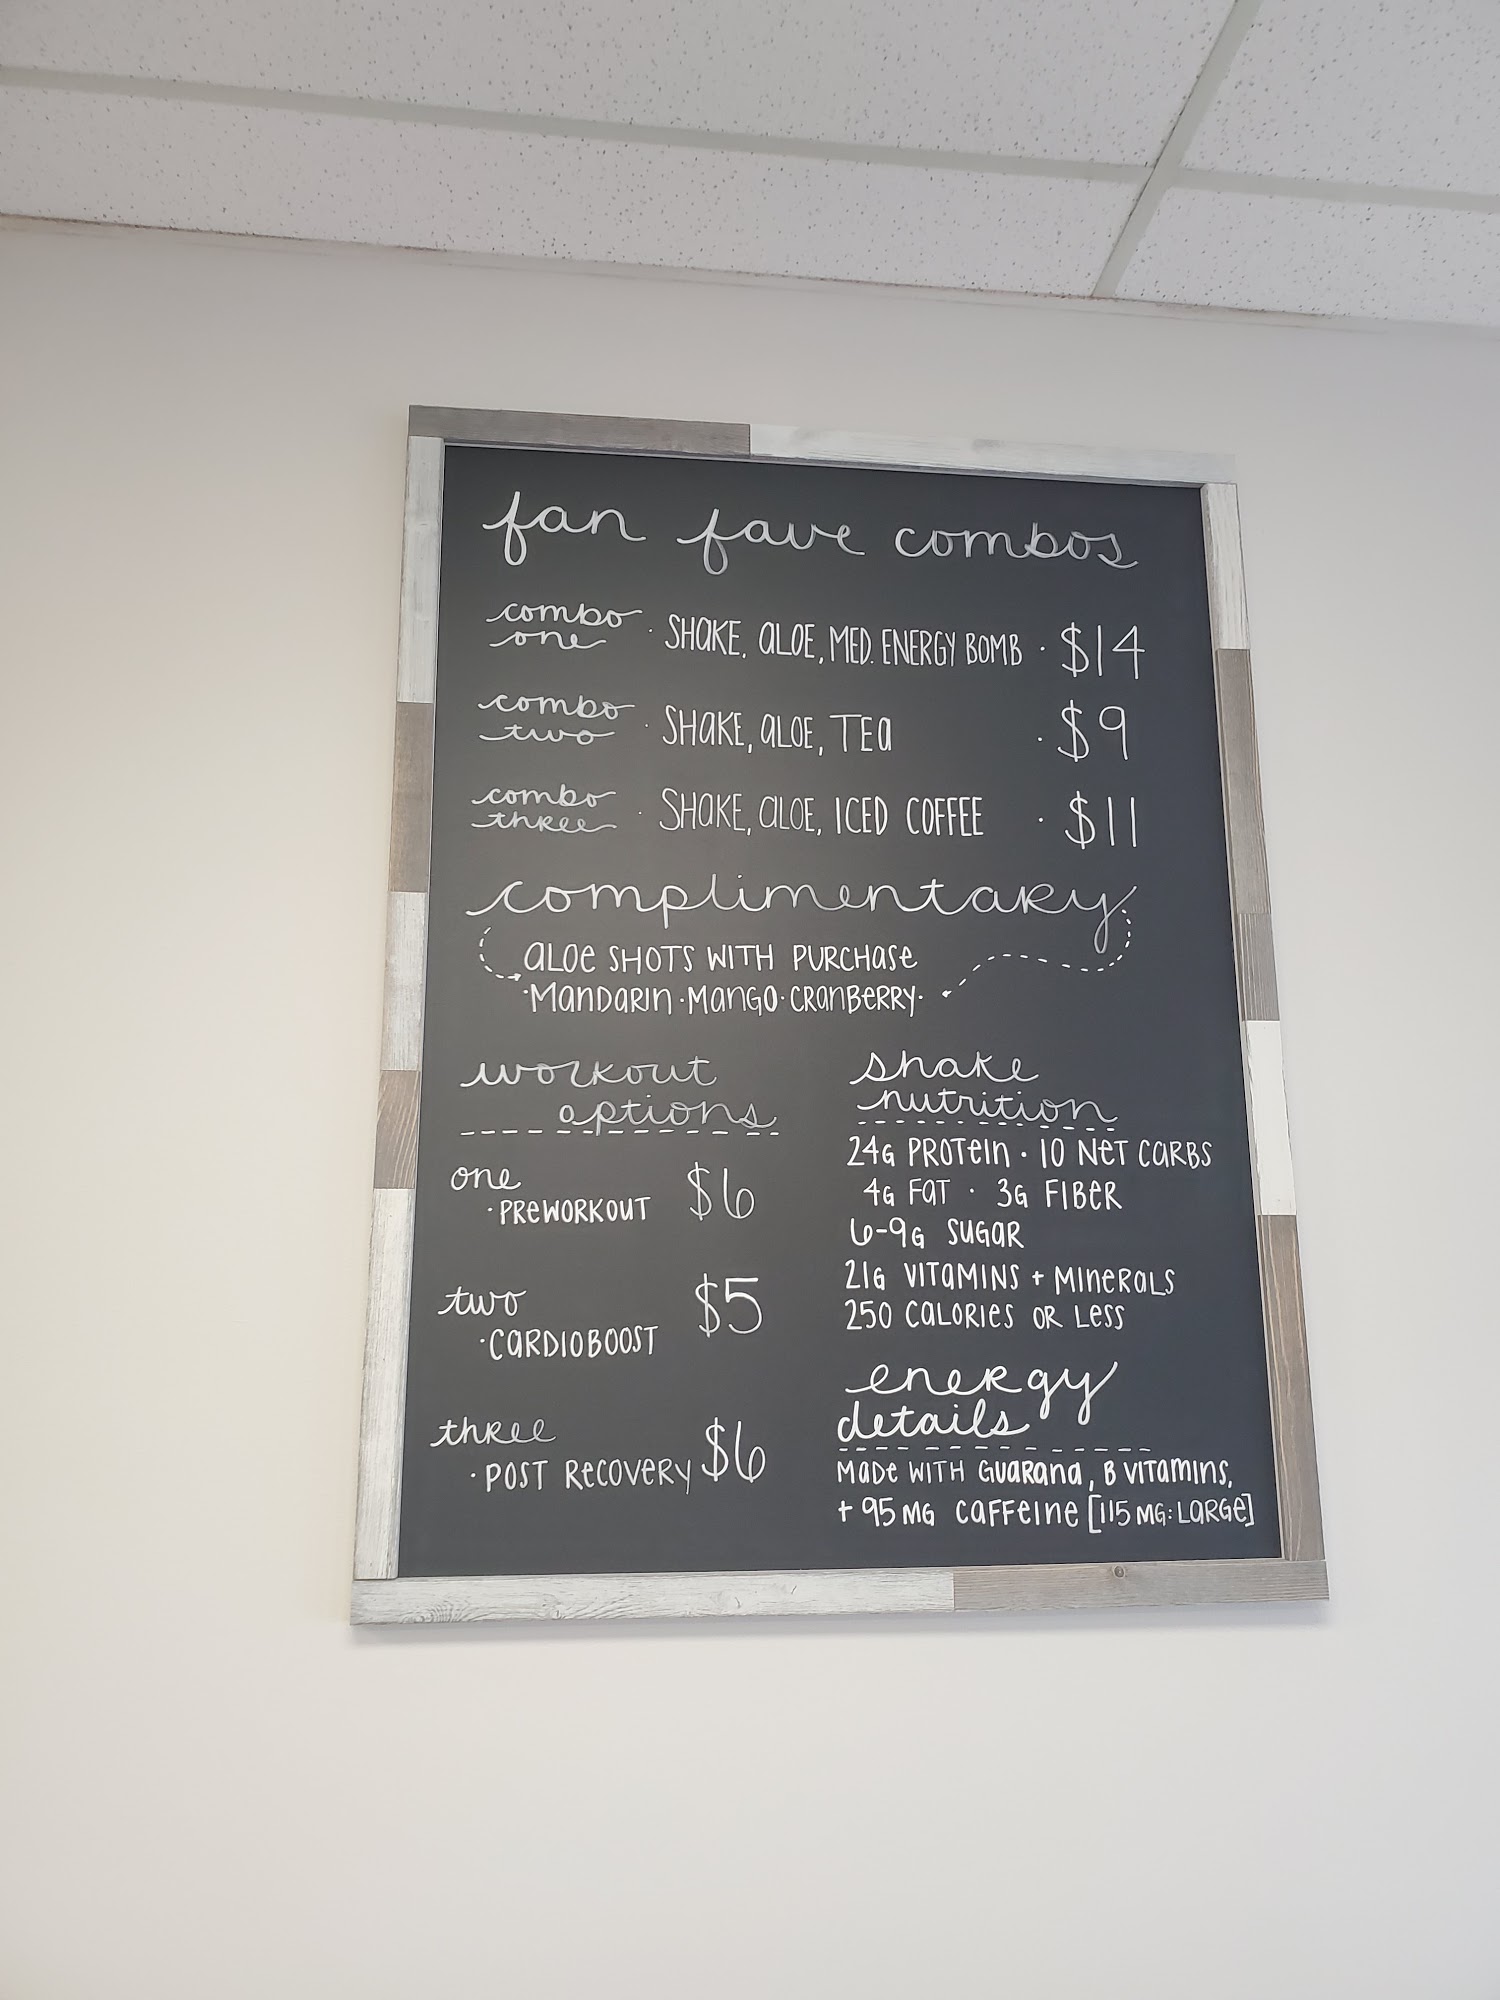 fan fave combos
combo one · SHAKE, ALOE, MED. ENERGY BOMB · $14
combo two · SHAKE, ALOE, TEA · $9
combo three · SHAKE, ALOE, ICED COFFEE · $11
complimentary
ALOE SHOTS WITH PURCHASE
·MANDARIN·MANGO·CRANBERRY·
workout
options
one
·PREWORKOUT $6
two
·CARDIOBOOST $5
three
·POST RECOVERY $6
shake
nutrition
24G PROTEIN · 10 NET CARBS
4G FAT · 3G FIBER
6-9G SUGAR
21G VITAMINS + MINERALS
250 CALORIES OR LESS
energy
details
MADE WITH GUARANA, B VITAMINS,
+ 95MG CAFFEINE [115MG: LARGE]